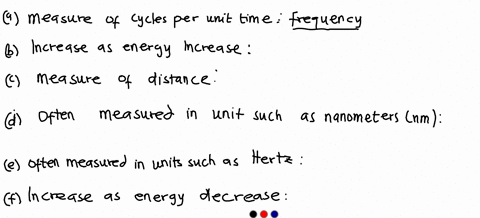 (a) measure of cycles per unit time: frequency
(b) Increase as energy increase:
(c) measure of distance:
(d) Often measured in unit such as nanometers (nm):
(e) often measured in units such as Hertz:
(f) Increase as energy decrease: